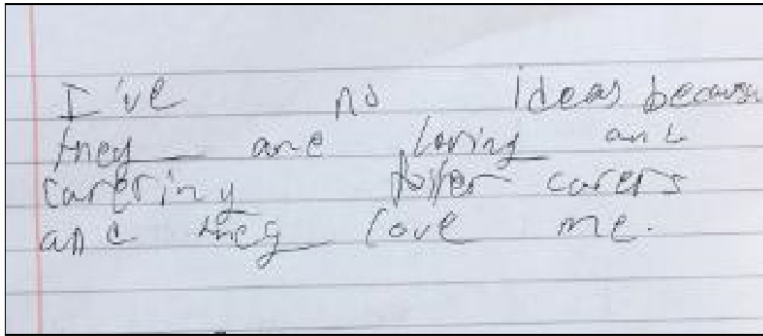 I've no ideas because
they are loving and
carering foster carers
and they love me.